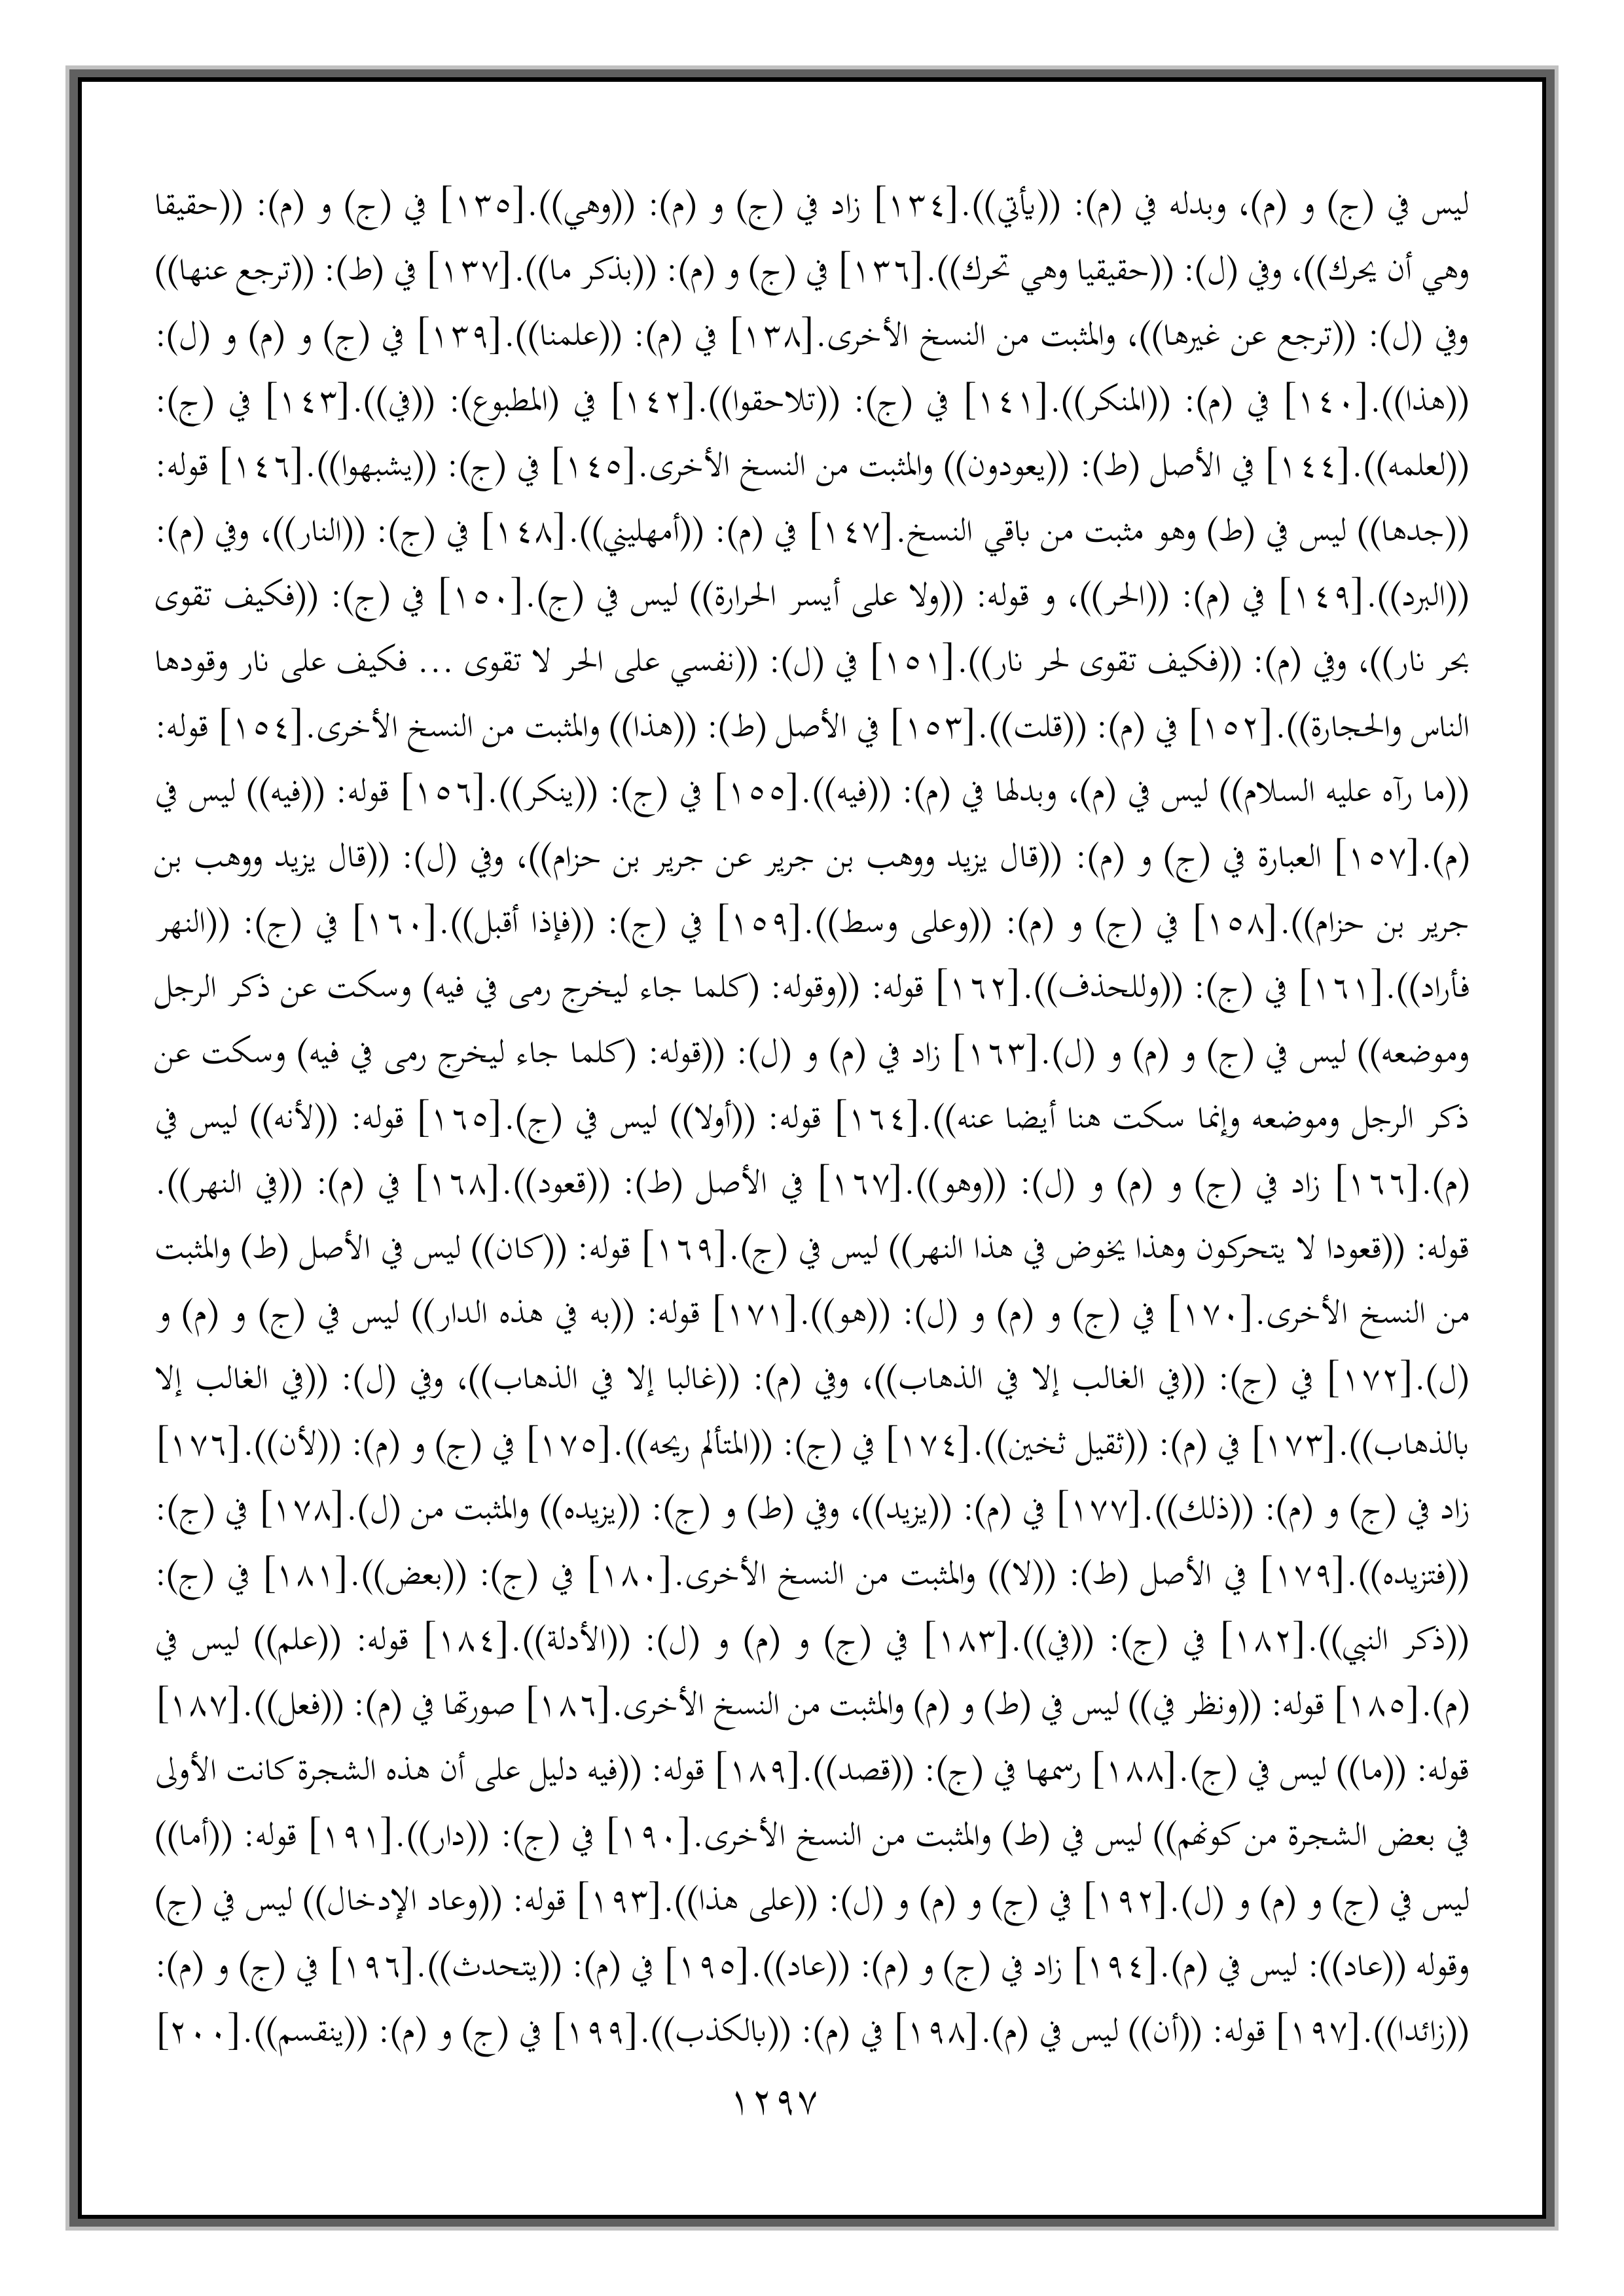 ليس في (ج) و (م)، وبدله في (م): ((يأتي)).[١٣٤] زاد في (ج) و (م): ((وهي)).[١٣٥] في (ج) و (م): ((حقيقا
وهي أن يحرك))، وفي (ل): ((حقيقيا وهي تحرك)).[١٣٦] في (ج) و (م): ((بذكر ما)).[١٣٧] في (ط): ((ترجع عنها))
وفي (ل): ((ترجع عن غيرها))، والمثبت من النسخ الأخرى.[١٣٨] في (م): ((علمنا)).[١٣٩] في (ج) و (م) و (ل):
((هذا)).[١٤٠] في (م): ((المنكر)).[١٤١] في (ج): ((تلاحقوا)).[١٤٢] في (المطبوع): ((في)).[١٤٣] في (ج):
((لعلمه)).[١٤٤] في الأصل (ط): ((يعودون)) والمثبت من النسخ الأخرى.[١٤٥] في (ج): ((يشبهوا)).[١٤٦] قوله:
((جدها)) ليس في (ط) وهو مثبت من باقي النسخ.[١٤٧] في (م): ((أمهليني)).[١٤٨] في (ج): ((النار))، وفي (م):
((البرد)).[١٤٩] في (م): ((الحر))، و قوله: ((ولا على أيسر الحرارة)) ليس في (ج).[١٥٠] في (ج): ((فكيف تقوى
بحر نار))، وفي (م): ((فكيف تقوى لحر نار)).[١٥١] في (ل): ((نفسي على الحر لا تقوى ... فكيف على نار وقودها
الناس والحجارة)).[١٥٢] في (م): ((قلت)).[١٥٣] في الأصل (ط): ((هذا)) والمثبت من النسخ الأخرى.[١٥٤] قوله:
((ما رآه عليه السلام)) ليس في (م)، وبدلها في (م): ((فيه)).[١٥٥] في (ج): ((ينكر)).[١٥٦] قوله: ((فيه)) ليس في
(م).[١٥٧] العبارة في (ج) و (م): ((قال يزيد ووهب بن جرير عن جرير بن حزام))، وفي (ل): ((قال يزيد ووهب بن
جرير بن حزام)).[١٥٨] في (ج) و (م): ((وعلى وسط)).[١٥٩] في (ج): ((فإذا أقبل)).[١٦٠] في (ج): ((النهر
فأراد)).[١٦١] في (ج): ((وللحذف)).[١٦٢] قوله: ((وقوله: (كلما جاء ليخرج رمى في فيه) وسكت عن ذكر الرجل
وموضعه)) ليس في (ج) و (م) و (ل).[١٦٣] زاد في (م) و (ل): ((قوله: (كلما جاء ليخرج رمى في فيه) وسكت عن
ذكر الرجل وموضعه وإنما سكت هنا أيضا عنه)).[١٦٤] قوله: ((أولا)) ليس في (ج).[١٦٥] قوله: ((لأنه)) ليس في
(م).[١٦٦] زاد في (ج) و (م) و (ل): ((وهو)).[١٦٧] في الأصل (ط): ((قعود)).[١٦٨] في (م): ((في النهر)).
قوله: ((قعودا لا يتحركون وهذا يخوض في هذا النهر)) ليس في (ج).[١٦٩] قوله: ((كان)) ليس في الأصل (ط) والمثبت
من النسخ الأخرى.[١٧٠] في (ج) و (م) و (ل): ((هو)).[١٧١] قوله: ((به في هذه الدار)) ليس في (ج) و (م) و
(ل).[١٧٢] في (ج): ((في الغالب إلا في الذهاب))، وفي (م): ((غالبا إلا في الذهاب))، وفي (ل): ((في الغالب إلا
بالذهاب)).[١٧٣] في (م): ((ثقيل ثخين)).[١٧٤] في (ج): ((المتألم ريحه)).[١٧٥] في (ج) و (م): ((لأن)).[١٧٦]
زاد في (ج) و (م): ((ذلك)).[١٧٧] في (م): ((يزيد))، وفي (ط) و (ج): ((يزيده)) والمثبت من (ل).[١٧٨] في (ج):
((فتزيده)).[١٧٩] في الأصل (ط): ((لا)) والمثبت من النسخ الأخرى.[١٨٠] في (ج): ((بعض)).[١٨١] في (ج):
((ذكر النبي)).[١٨٢] في (ج): ((في)).[١٨٣] في (ج) و (م) و (ل): ((الأدلة)).[١٨٤] قوله: ((علم)) ليس في
(م).[١٨٥] قوله: ((ونظر في)) ليس في (ط) و (م) والمثبت من النسخ الأخرى.[١٨٦] صورتها في (م): ((فعل)).[١٨٧]
قوله: ((ما)) ليس في (ج).[١٨٨] رسمها في (ج): ((قصد)).[١٨٩] قوله: ((فيه دليل على أن هذه الشجرة كانت الأولى
في بعض الشجرة من كونهم)) ليس في (ط) والمثبت من النسخ الأخرى.[١٩٠] في (ج): ((دار)).[١٩١] قوله: ((أما))
ليس في (ج) و (م) و (ل).[١٩٢] في (ج) و (م) و (ل): ((على هذا)).[١٩٣] قوله: ((وعاد الإدخال)) ليس في (ج)
وقوله ((عاد)): ليس في (م).[١٩٤] زاد في (ج) و (م): ((عاد)).[١٩٥] في (م): ((يتحدث)).[١٩٦] في (ج) و (م):
((زائدا)).[١٩٧] قوله: ((أن)) ليس في (م).[١٩٨] في (م): ((بالكذب)).[١٩٩] في (ج) و (م): ((ينقسم)).[٢٠٠]
١٢٩٧